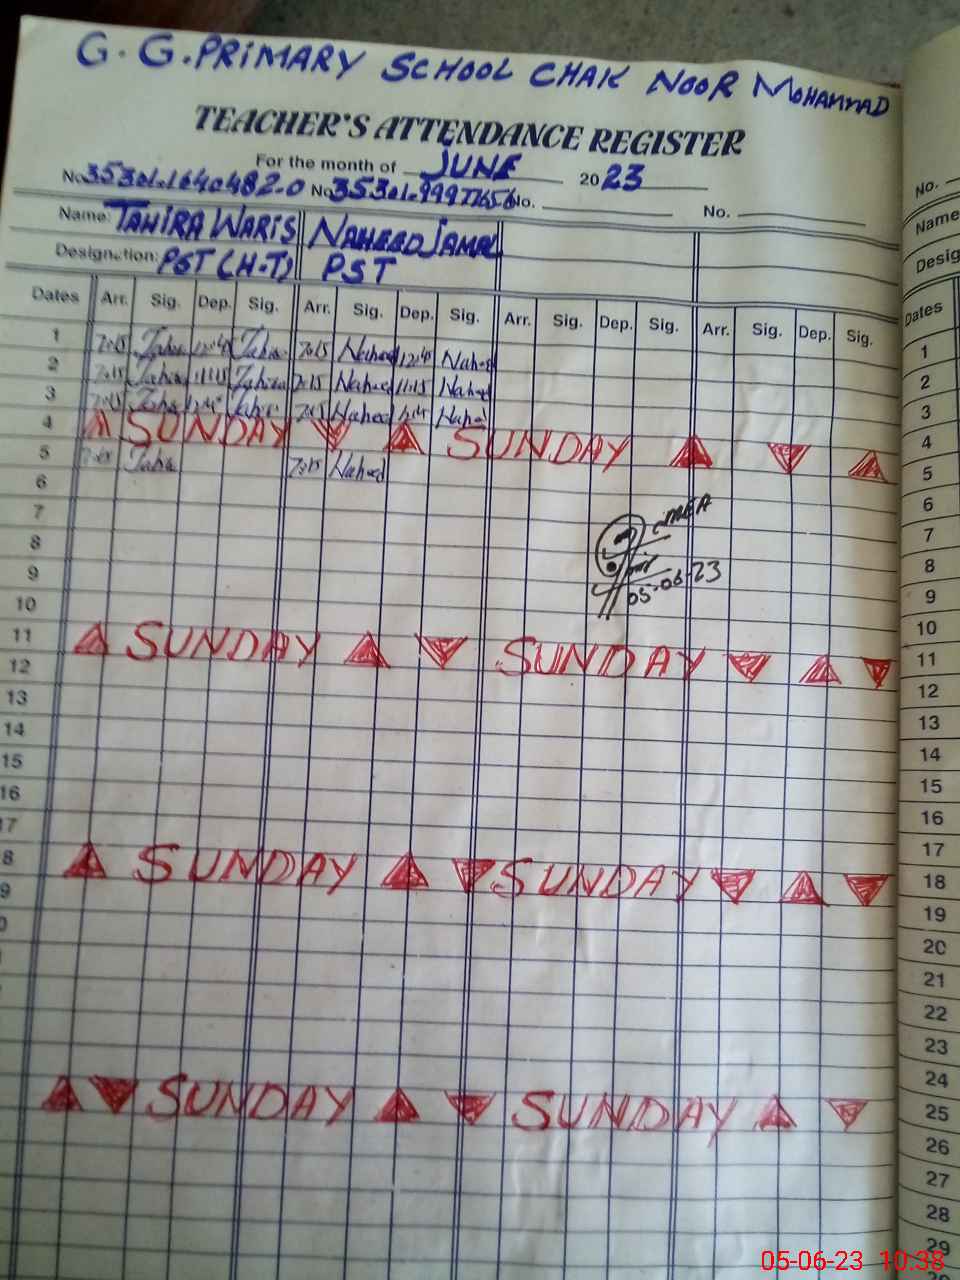 G.G.PRIMARY SCHOOL CHAK NOOR MOHAMMAD
TEACHER'S ATTENDANCE REGISTER
For the month of JUNE 2023
No. 35301.1640482-0 No. 35301.9997765 No. No.
Name: TAHIRA WARIS NAHEED JAMAL
Designation: PST (H.T) PST
Dates Arr. Sig. Dep. Sig. Arr. Sig. Dep. Sig. Arr. Sig. Dep. Sig. Arr. Sig. Dep. Sig.
1 7:15 Tahira 12:45 Tahira 7:15 Naheed 12:45 Naheed
2 7:15 Tahira 11:15 Tahira 7:15 Naheed 11:15 Naheed
3 7:15 Tahira 12:45 Tahira 7:15 Naheed 12:45 Naheed
4 SUNDAY SUNDAY
5 7:15 Tahira 7:15 Naheed
6
7
MEA
8
9
05-06-23
10
11 SUNDAY SUNDAY
12
13
14
15
16
17
8 SUNDAY SUNDAY
9
0
SUNDAY SUNDAY
No.
Name
Desig
Dates
1
2
3
4
5
6
7
8
9
10
11
12
13
14
15
16
17
18
19
20
21
22
23
24
25
26
27
28
29
05-06-23 10:38